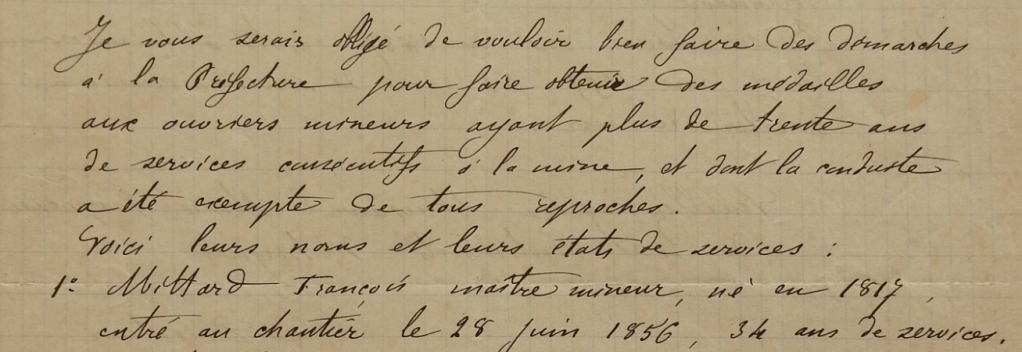 Je vous serais obligé de vouloir bien faire des démarches
à la Préfecture pour faire obtenir des médailles
aux ouvriers mineurs ayant plus de trente ans
de services consécutifs à la mine, et dont la conduite
a été exempte de tous reproches.
Voici leurs noms et leurs états de services :
1º Mittard François maître mineur, né en 1817,
entré au chantier le 28 juin 1856, 34 ans de services.